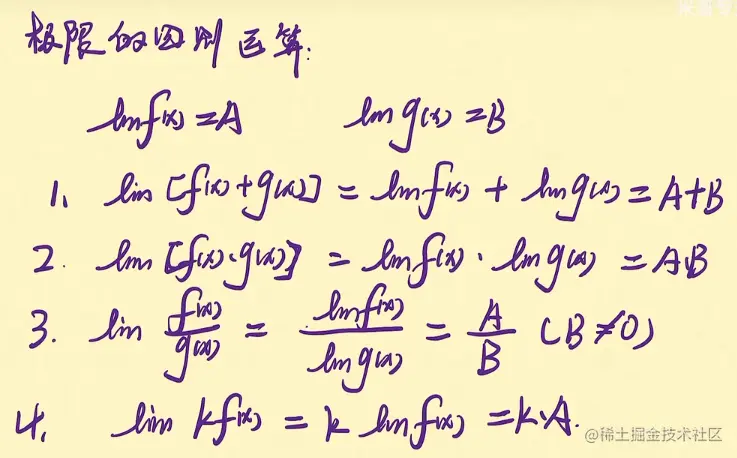 极限的四则运算:
lim f(x) = A    lim g(x) = B
1. lim [f(x)+g(x)] = lim f(x) + lim g(x) = A+B
2. lim [f(x)·g(x)] = lim f(x) · lim g(x) = A·B
3. lim f(x)/g(x) = lim f(x)/lim g(x) = A/B (B≠0)
4. lim kf(x) = k lim f(x) = k·A.
@稀土掘金技术社区